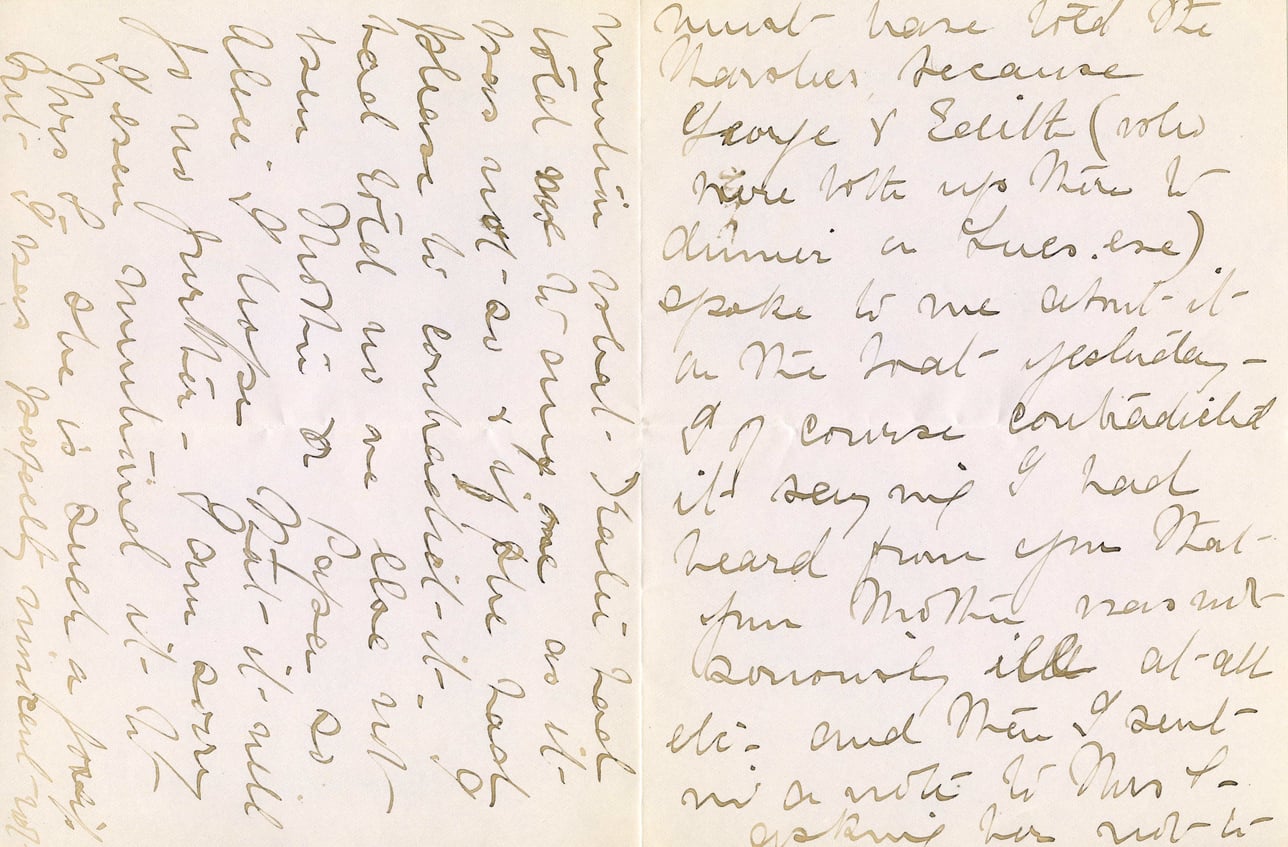 must have told the
because
George & Edith (who
were both up there to
dinner on Tues. eve)
spoke to me about it
on the boat yesterday -
I of course contradicted
it saying I had
heard from you that
your Mother was not
seriously ill at all
etc - and then I sent
a note to Mrs L -
asking her not to
mention what had
told me to any one as it
was not so & if she had
please to contradict it -
had told no one else not
even Mother or Papa so
I hope that it will
go no further - I am sorry
I even mentioned it to
Mrs L she is such a gossip
but I was perfectly innocent not